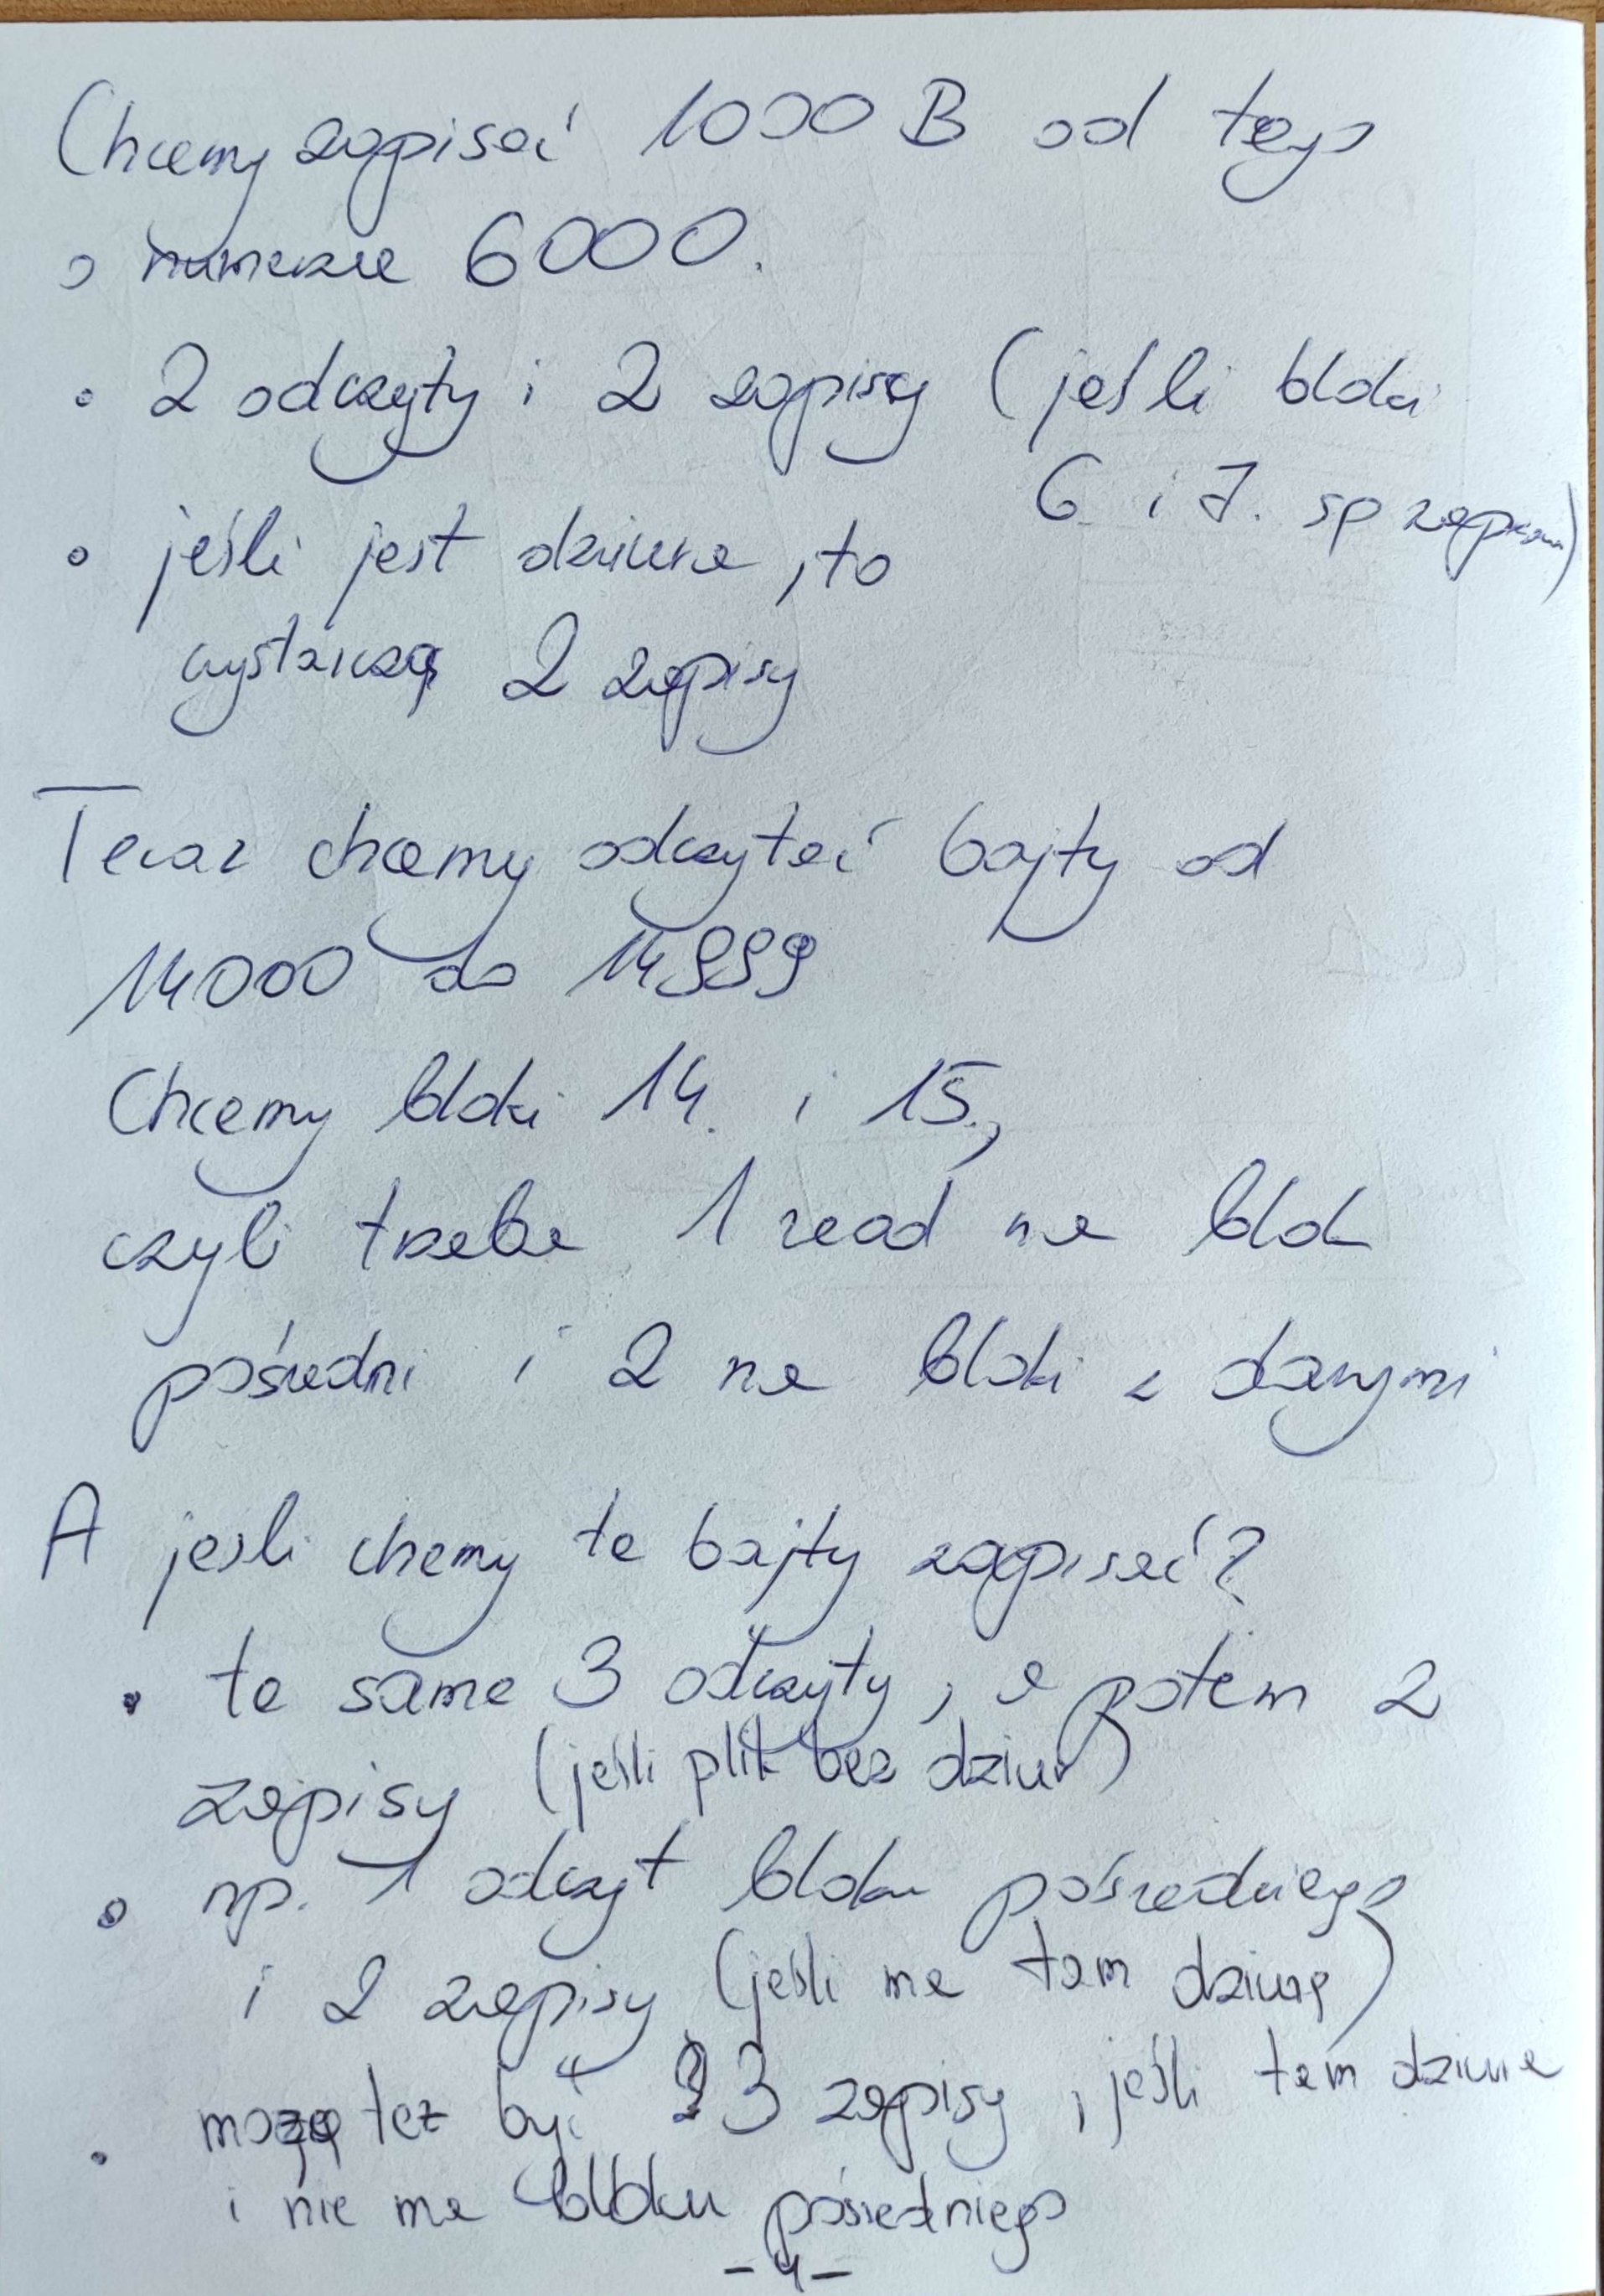 Chcemy zapisać 1000 B od tego
o numerze 6000.
• 2 odczyty i 2 zapisy (jeśli bloki
6 i 7. są zapisane)
• jeśli jest dziura, to
wystarczą 2 zapisy
Teraz chcemy odczytać bajty od
14000 do 14999
Chcemy bloki 14. i 15.,
czyli trzeba 1 read na blok
pośredni i 2 na bloki z danymi
A jeśli chemy te bajty zapisać?
• te same 3 odczyty, a potem 2
zapisy (jeśli plik bez dziur)
• np. 1 odczyt bloku pośredniego
i 2 zapisy (jeśli ma tam dziurę)
• mogą też być 3 zapisy, jeśli tam dziura
i nie ma bloku pośredniego
- 4 -